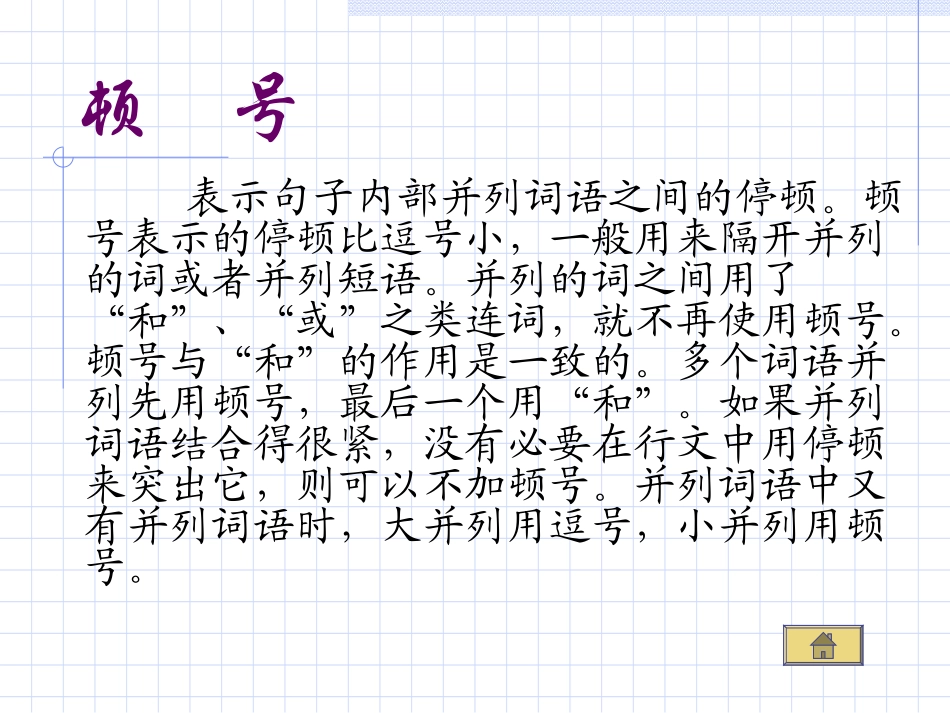 顿 号
表示句子内部并列词语之间的停顿。顿
号表示的停顿比逗号小，一般用来隔开并列
的词或者并列短语。并列的词之间用了
“和”、“或”之类连词，就不再使用顿号。
顿号与“和”的作用是一致的。多个词语并
列先用顿号，最后一个用“和”。如果并列
词语结合得很紧，没有必要在行文中用停顿
来突出它，则可以不加顿号。并列词语中又
有并列词语时，大并列用逗号，小并列用顿
号。